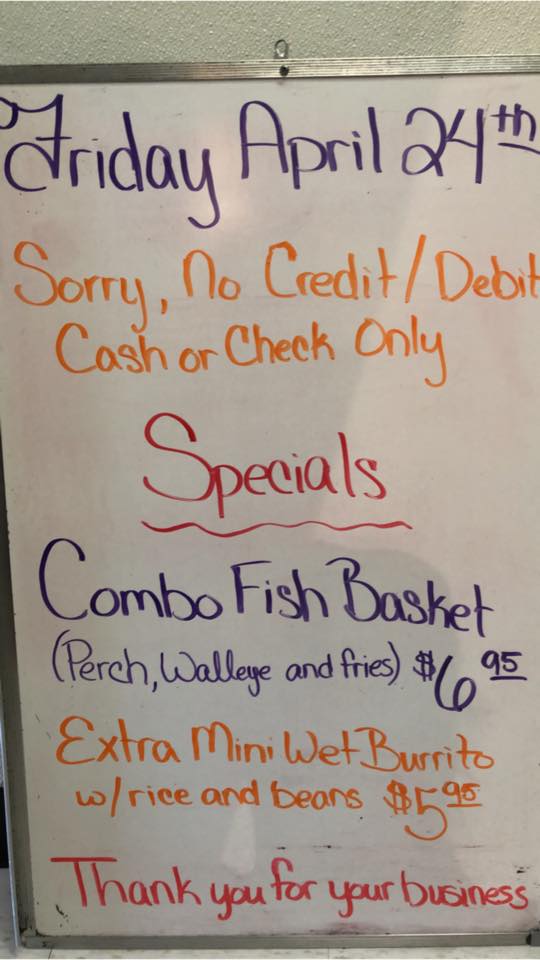 Friday April 24th
Sorry, No Credit/Debit
Cash or Check Only
Specials
Combo Fish Basket
(Perch, Walleye and fries) $6 95
Extra Mini Wet Burrito
w/rice and beans $5 95
Thank you for your business